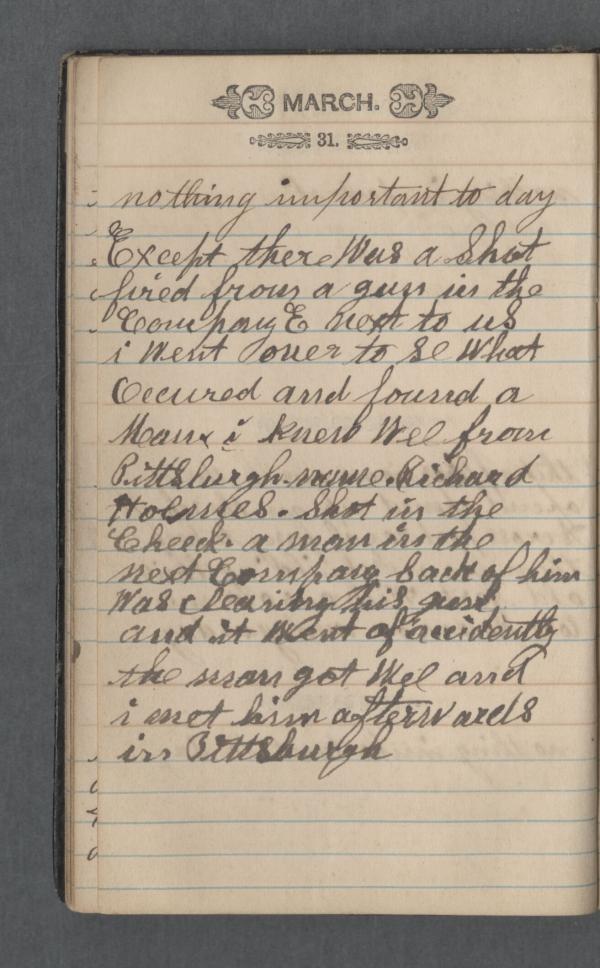 MARCH.
31.
nothing important to day
Except there Was a Shot
fired from a gun in the
Company E next to us
i Went over to Se What
Occured and found a
Man i knew Wel from
Pittsburgh name. Richard
Holmes. Shot in the
Cheeck. a man in the
next Company back of him
Was Clearing his gun
and it Went of accidently
the man got Wel and
i met him afterwards
in Pittsburgh